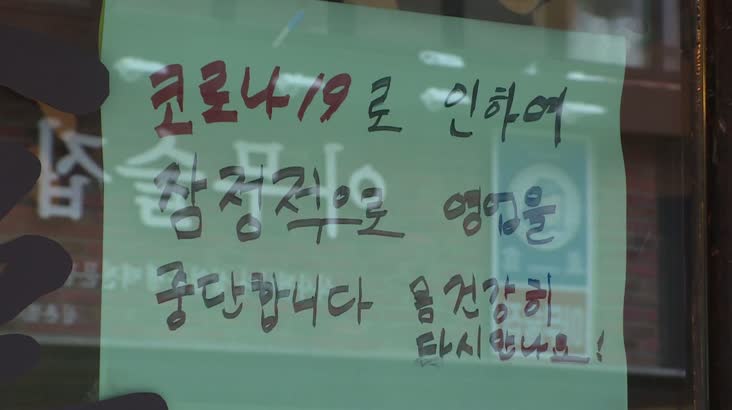 코로나19로 인하여
잠정적으로 영업을
중단합니다 몸건강히
다시만나요!